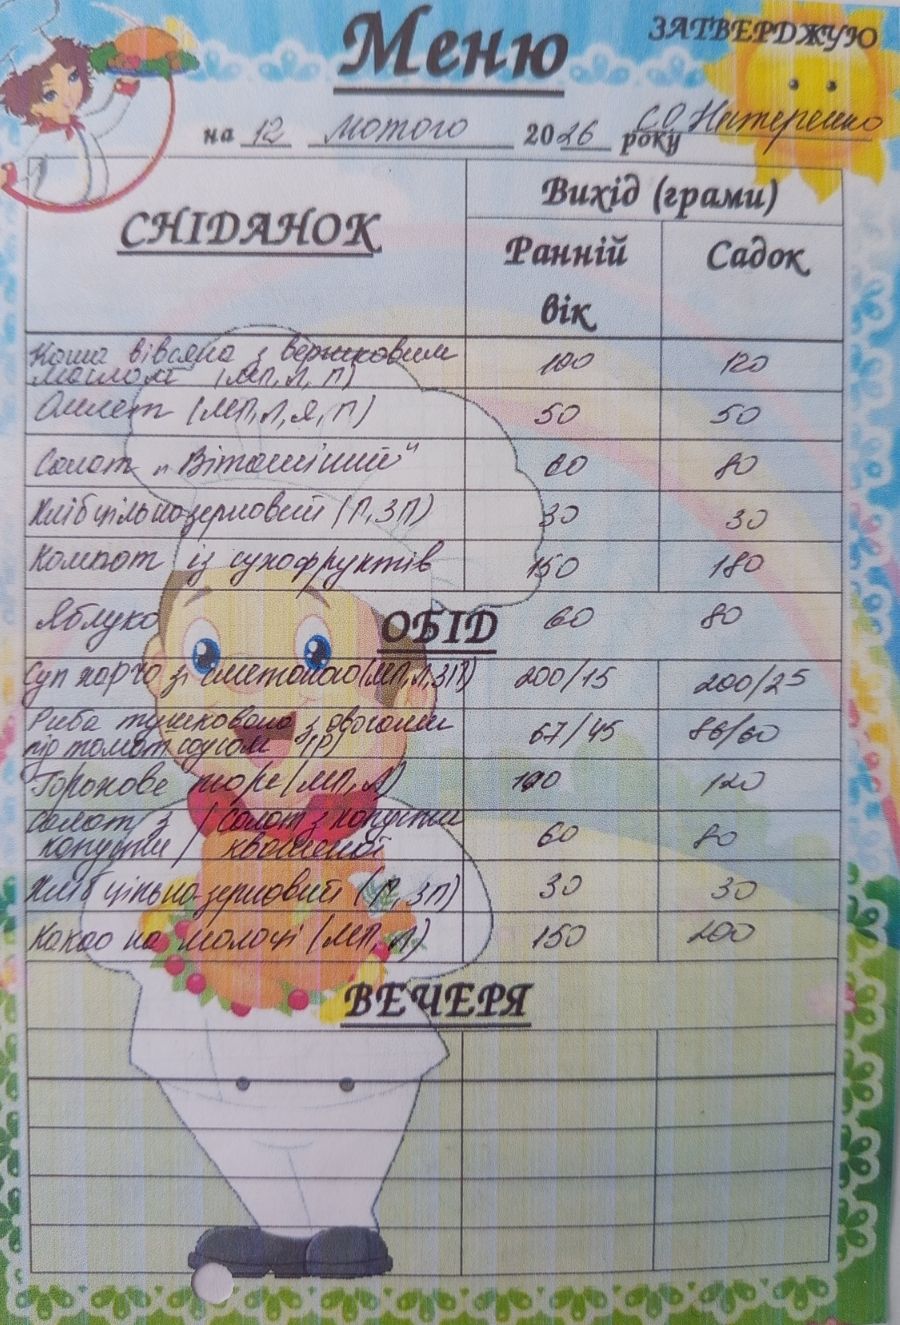 Меню
ЗАТВЕРДЖУЮ
на 12 лютого 2026 року
СНІДАНОК
Вихід (грами)
Ранній вік
Садок
Каша вівсяна з вершковим
маслом (МП, Л, П) 100 120
Омлет (МП, Л, Я, П) 50 50
Салат „Вітамінний" 60 80
Хліб цільнозерновий (П, ЗП) 30 30
Компот із сухофруктів 150 180
Яблуко 60 80
ОБІД
Суп харчо зі сметаною (МП, Л, ЗП) 200/15 200/25
Риба тушкована з овочами
під томат. соусом (Р) 67/45 86/60
Горохове пюре (МП, Л) 100 120
Салат з / Салат з капусти
капусти / квашеної 60 80
Хліб цільнозерновий (П, ЗП) 30 30
Какао на молоці (МП, Л) 150 200
ВЕЧЕРЯ